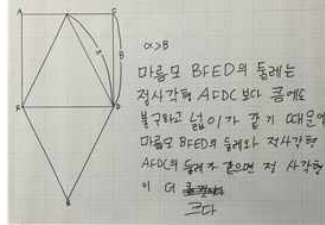 A
C
α
B
F
D
α>B
마름모 BFED의 둘레는
정사각형 AFDC보다 큼에도
불구하고 넓이가 같기 때문에
마름모 BFED의 둘레와 정사각형
AFDC의 둘레가 같으면 정 사각형
이 더
크다